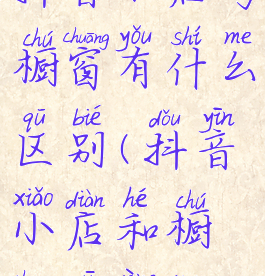 chú chuāng yǒu shí me
橱窗有什么
qū bié dǒu yīn
区别(抖音
xiǎo diàn hé chú
小店和橱